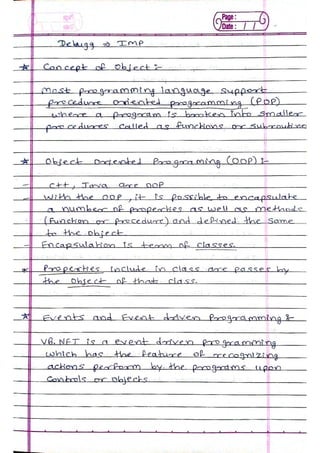 Page:
Date: / /
Debugg ⇒ IMP
* Concept of Object :-
Most programming language support
procedure oriented programming (POP)
where a program is broken into smaller
procedures called as functions or subroutine
* Object Oriented Programming (OOP) :-
- C++, Java are OOP
- With the OOP, it is possible to encapsulate
a number of properties as well as methods
(function or procedure) and defined the same
to the object.
- Encapsulation is term of classes.
* Properties include in class are passes by
the object of that class.
* Events and Event driven Programming :-
VB.NET is a event driven programming
which has the feature of recognizing
actions perform by the programs upon
Controls or objects